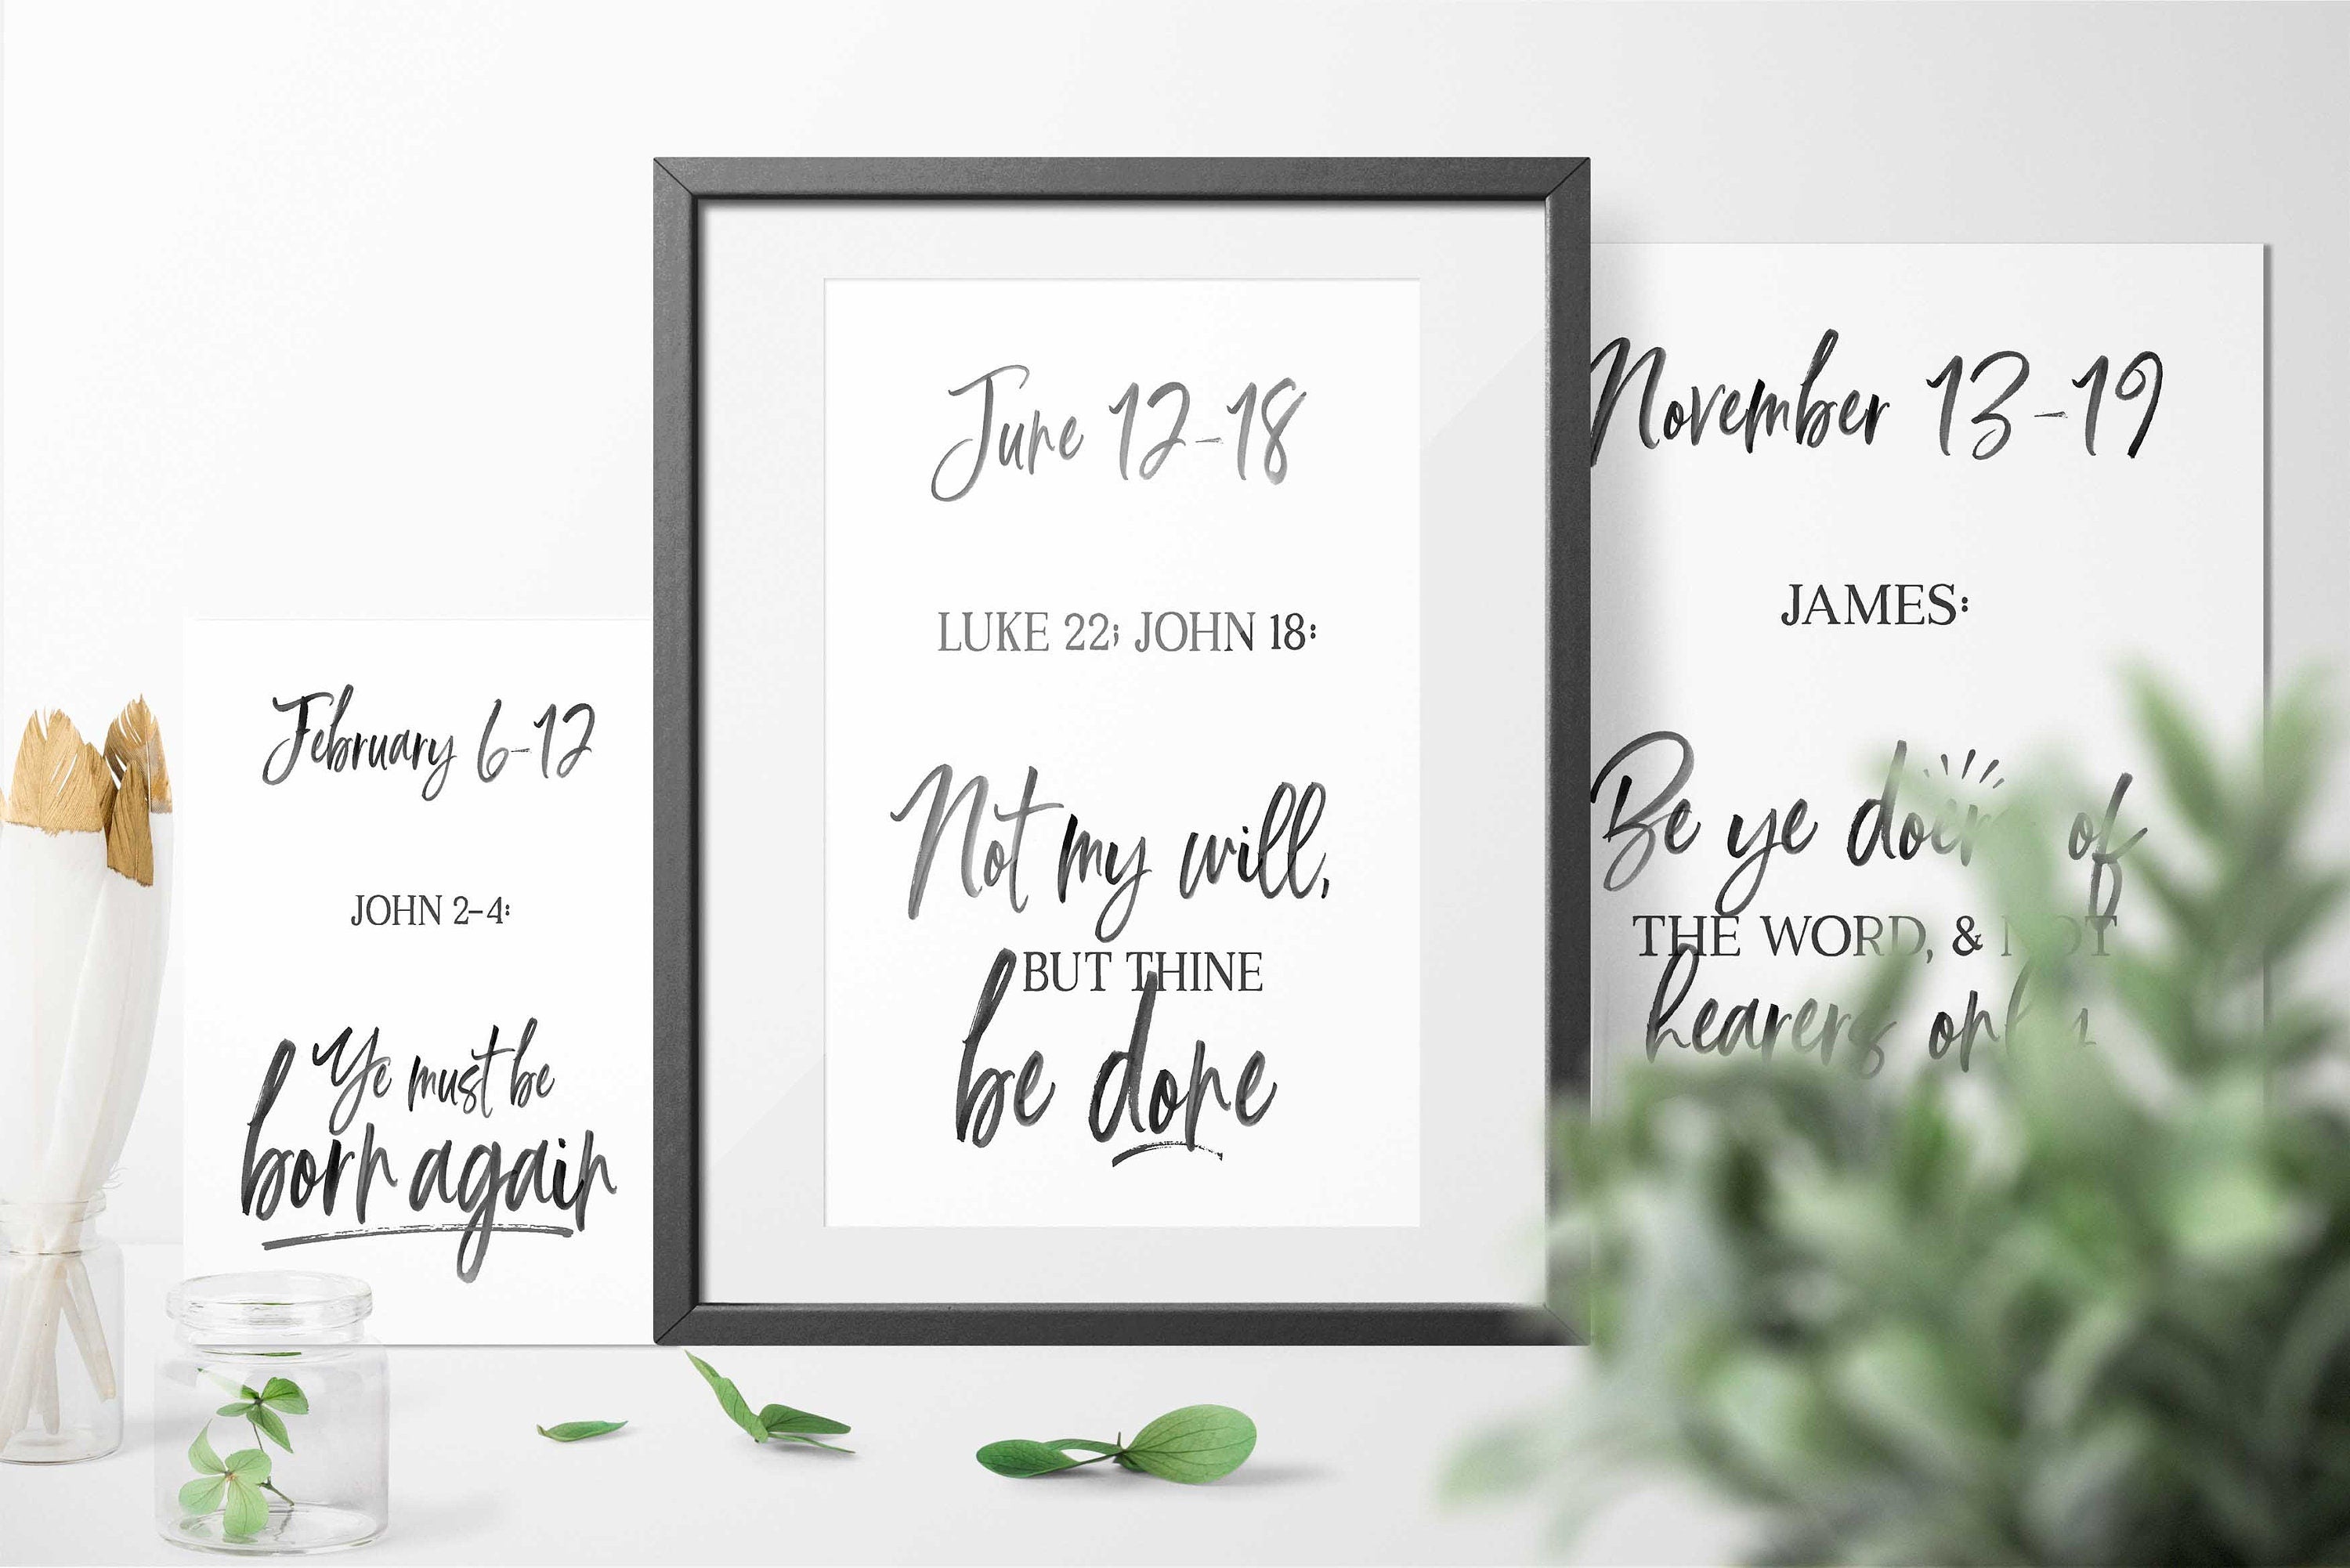 February 6-12
JOHN 2-4:
Ye must be
born again
June 12-18
LUKE 22; JOHN 18:
Not my will,
BUT THINE
be done
November 13-19
JAMES:
Be ye doers of
THE WORD, & NOT
hearers only